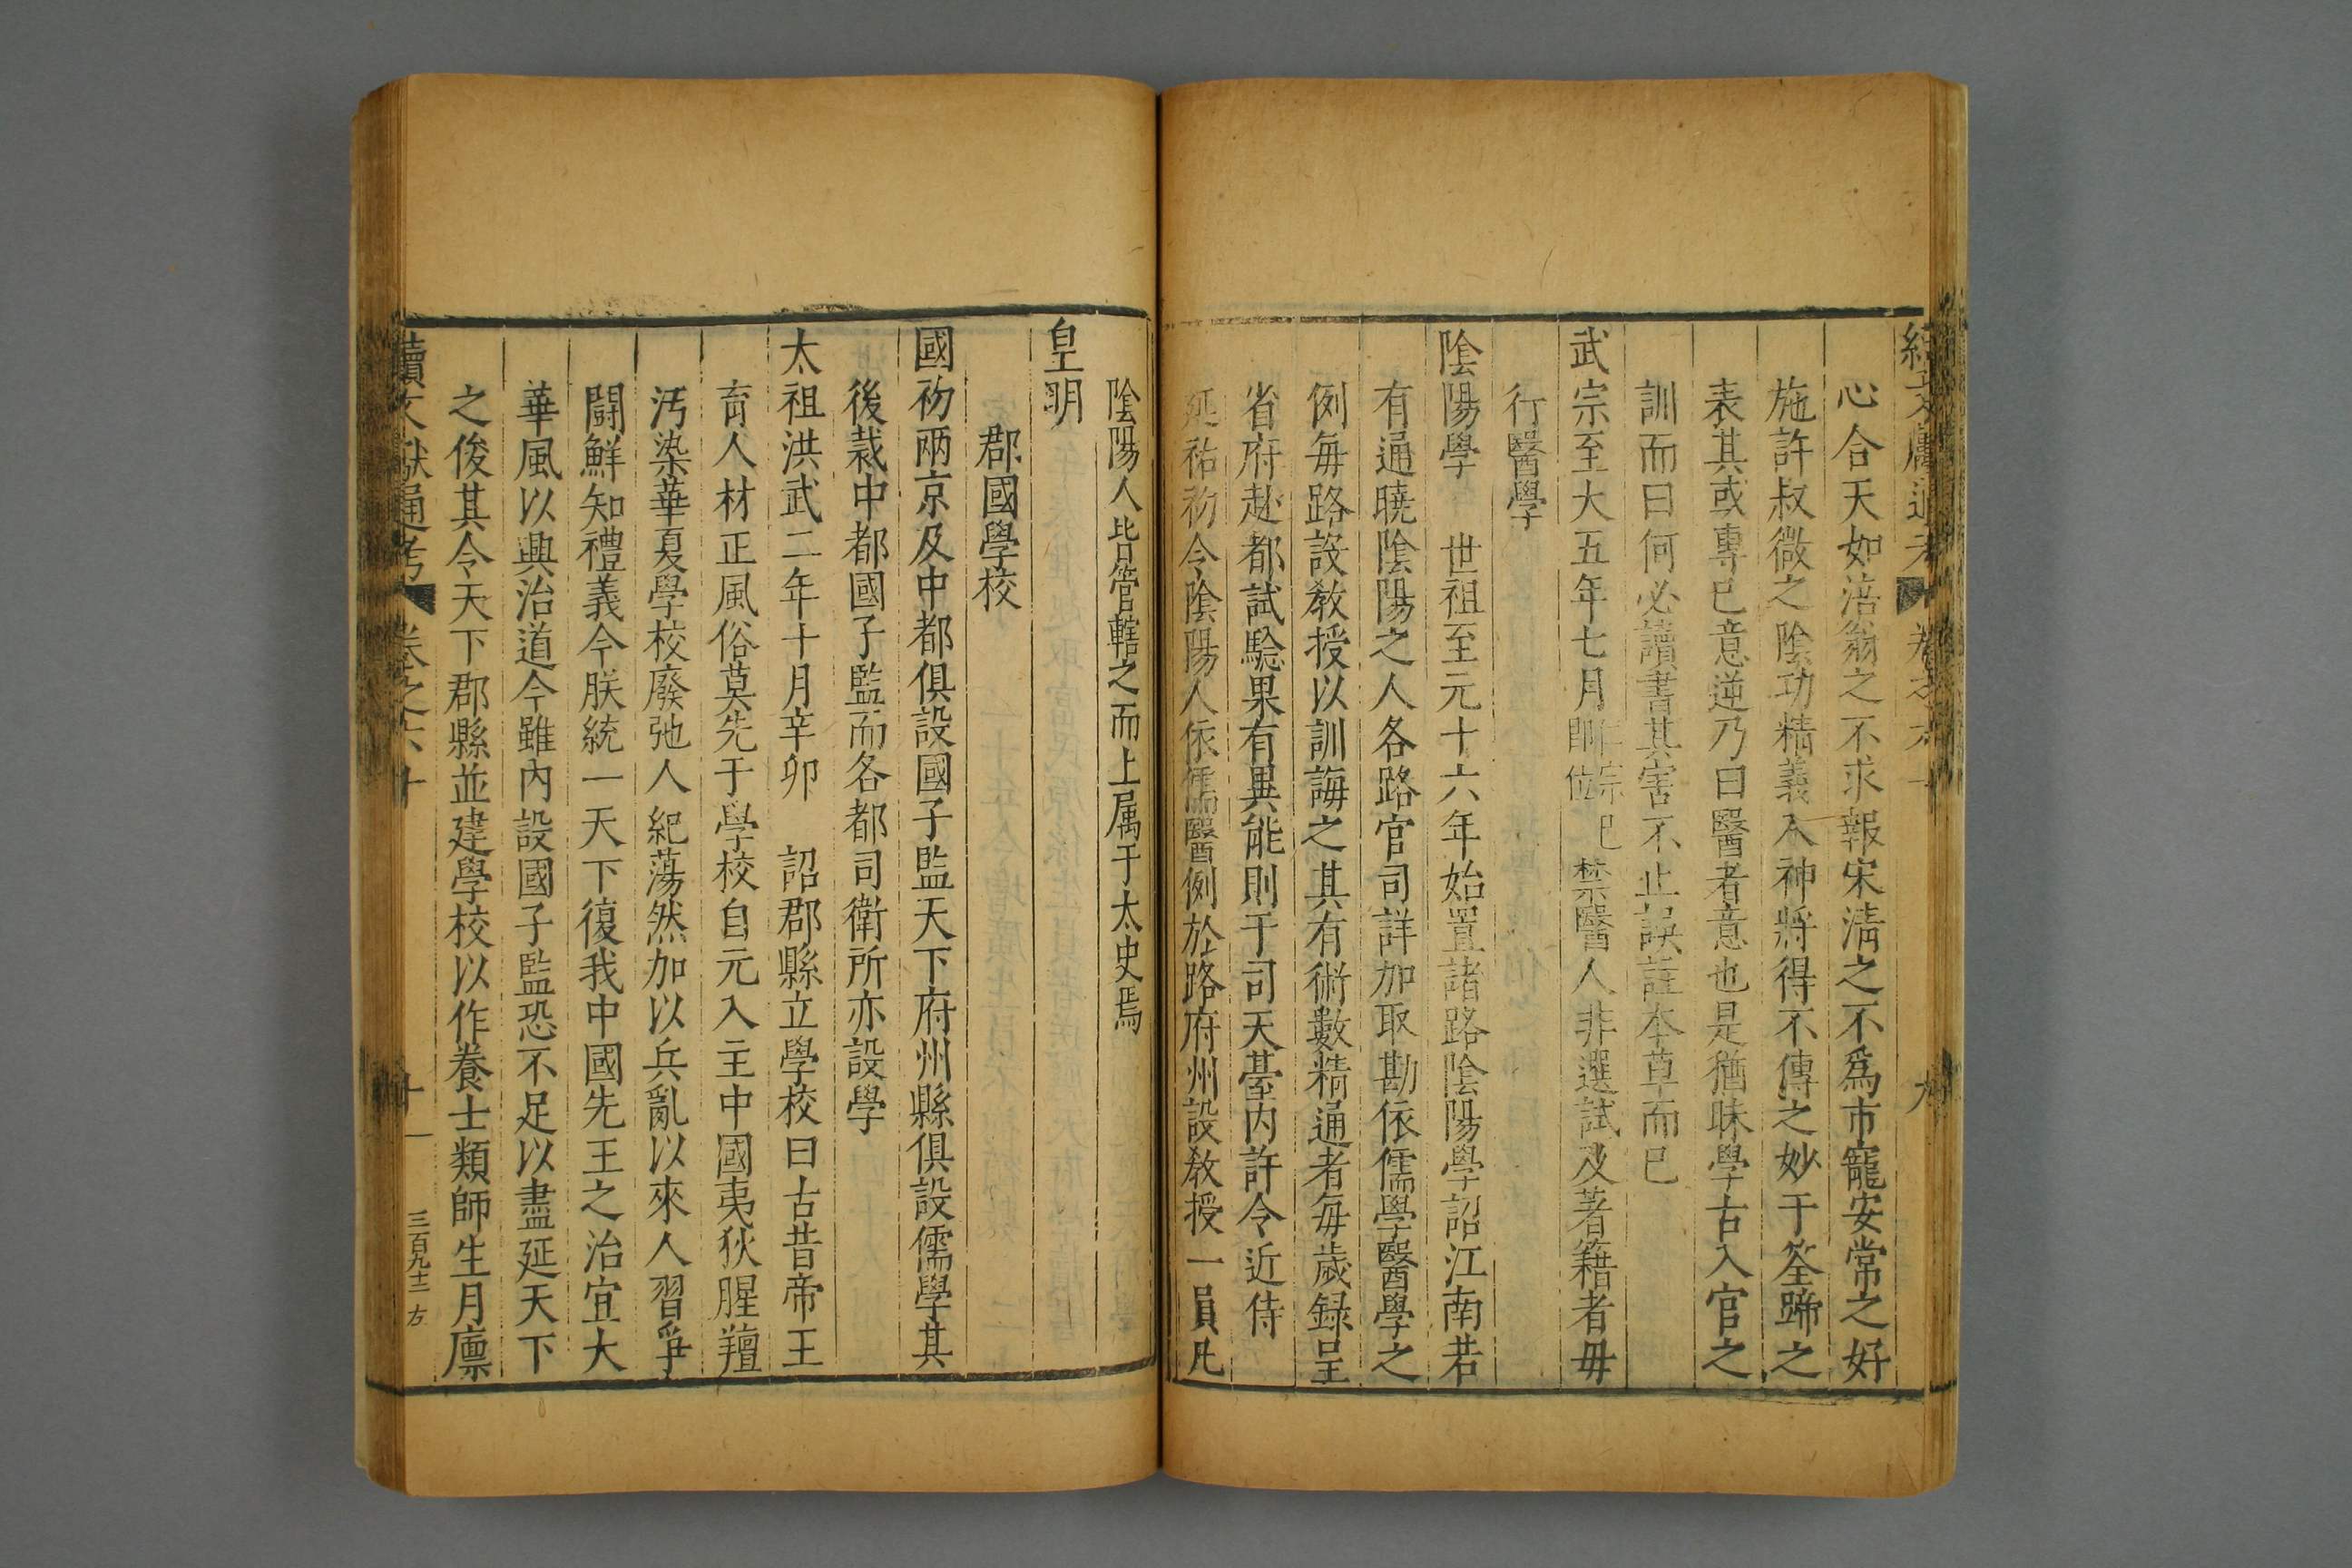 心合天如涪翁之不求報宋淸之不爲市寵安常之好
施許叔微之陰功精義入神將得不傳之妙于筌蹄之
表其或專已意逆乃曰醫者意也是猶昧學古入官之
訓而曰何必讀書其害不止誤註本草而已
武宗至大五年七月仁宗已卽位禁醫人非選試及著籍者毋
行醫學
陰陽學 世祖至元十六年始置諸路陰陽學詔江南若
有通曉陰陽之人各路官司詳加取勘依儒學醫學之
例每路設敎授以訓誨之其有術數精通者每歲録呈
省府赴都試驗果有異能則于司天臺內許令近侍
延祐初令陰陽人依儒醫例於路府州設敎授一員凡
陰陽人皆管轄之而上属于太史焉
皇明
郡國學校
國初兩京及中都俱設國子監天下府州縣俱設儒學其
後裁中都國子監而各都司衛所亦設學
太祖洪武二年十月辛卯 詔郡縣立學校曰古昔帝王
育人材正風俗莫先于學校自元入主中國夷狄腥羶
汚染華夏學校廢弛人紀蕩然加以兵亂以來人習爭
鬪鮮知禮義今朕統一天下復我中國先王之治宜大
華風以興治道今雖內設國子監恐不足以盡延天下
之俊其令天下郡縣並建學校以作養士類師生月廪
續文獻通考 卷之六十 十 三百九十二 方